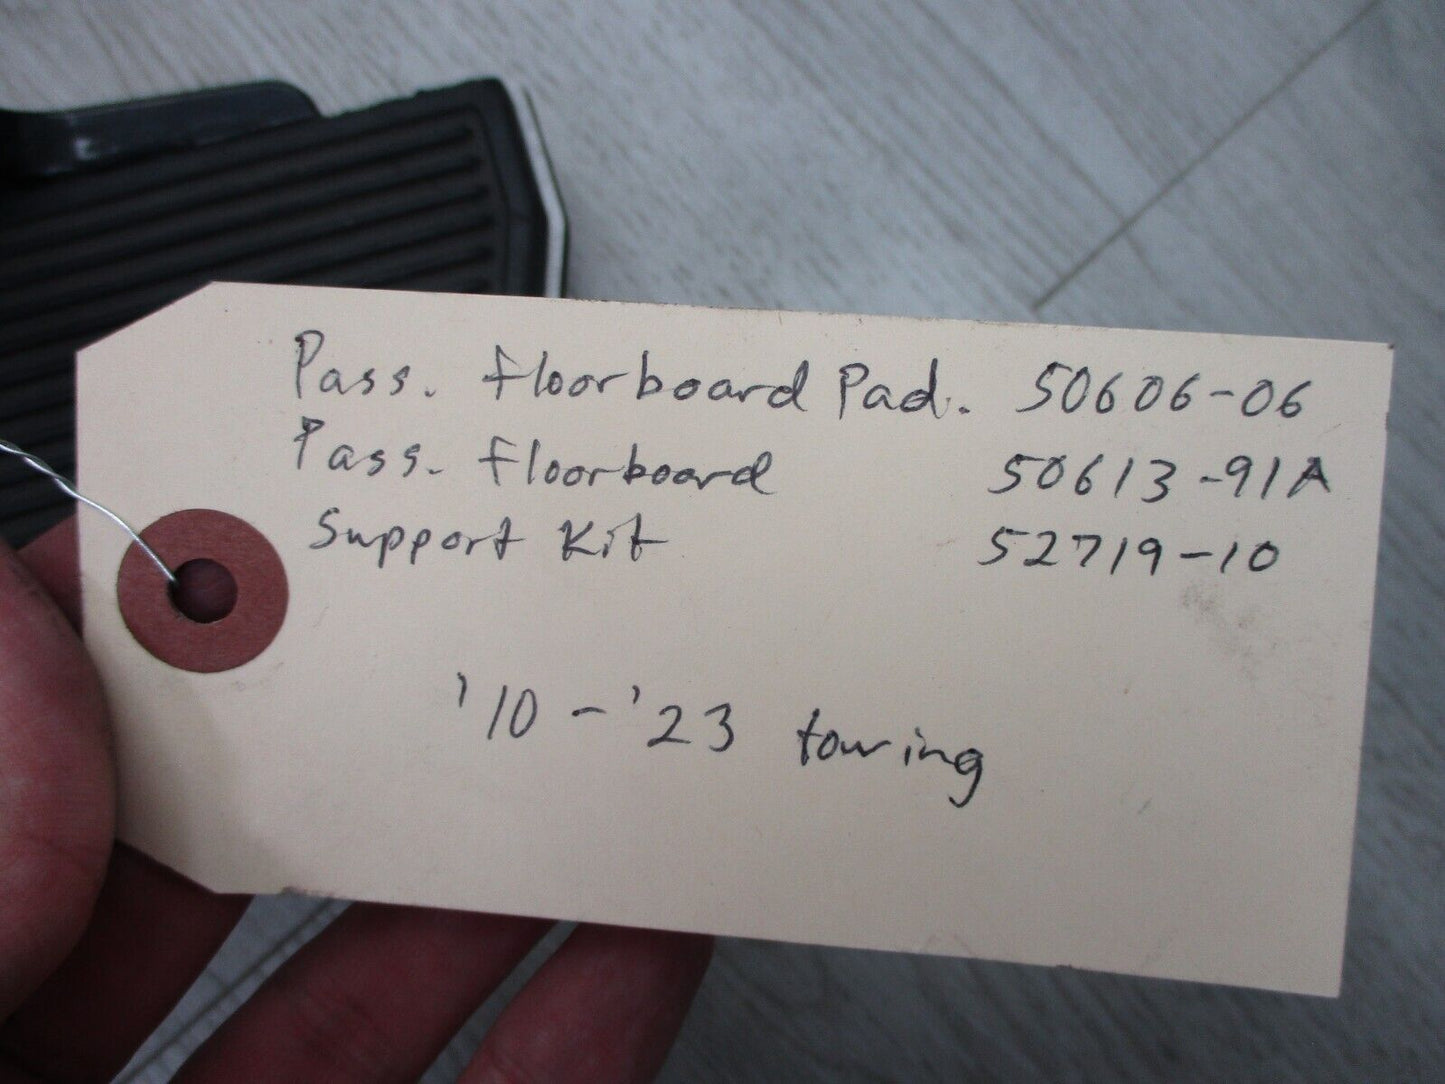 Pass. floorboard Pad. 50606-06
Pass. floorboard 50613-91A
Support Kit 52719-10
'10 - '23 touring